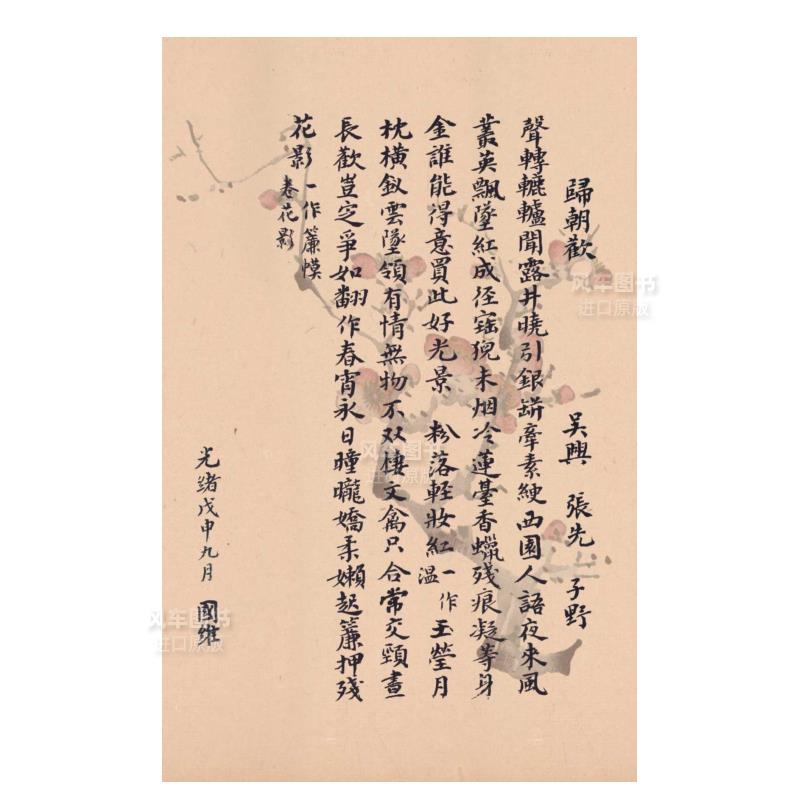 歸朝歡
吳興 張先 子野
聲轉轆轤聞露井曉引銀缾牽素綆西園人語夜來風
叢英飄墜紅成徑寶猊未烟冷蓮臺香蠟残痕凝等身
金誰能得意買此好光景 粉落輕妝紅一作温玉瑩月
枕橫釵雲墜領有情無物不双棲文禽只合常交頸晝
長歡豈定爭如翻作春宵永日曈曨嬌柔嬾起簾押残
花影一作簾幙卷花影
光緒戊申九月 國維
风车图书
进口原版
风车图书
进口原版
风车图书
进口原版